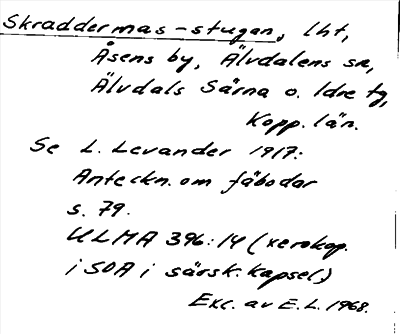 Skraddermas-stugan, lht,
Åsens by, Älvdalens sn,
Älvdals Särna o. Idre tg,
Kopp. län.
Se L. Levander 1917:
Anteckn. om fäbodar
s. 79.
ULMA 396:14 (xerokop.
i SOA i särsk. kapsel.)
Exc. av E.L. 1968.